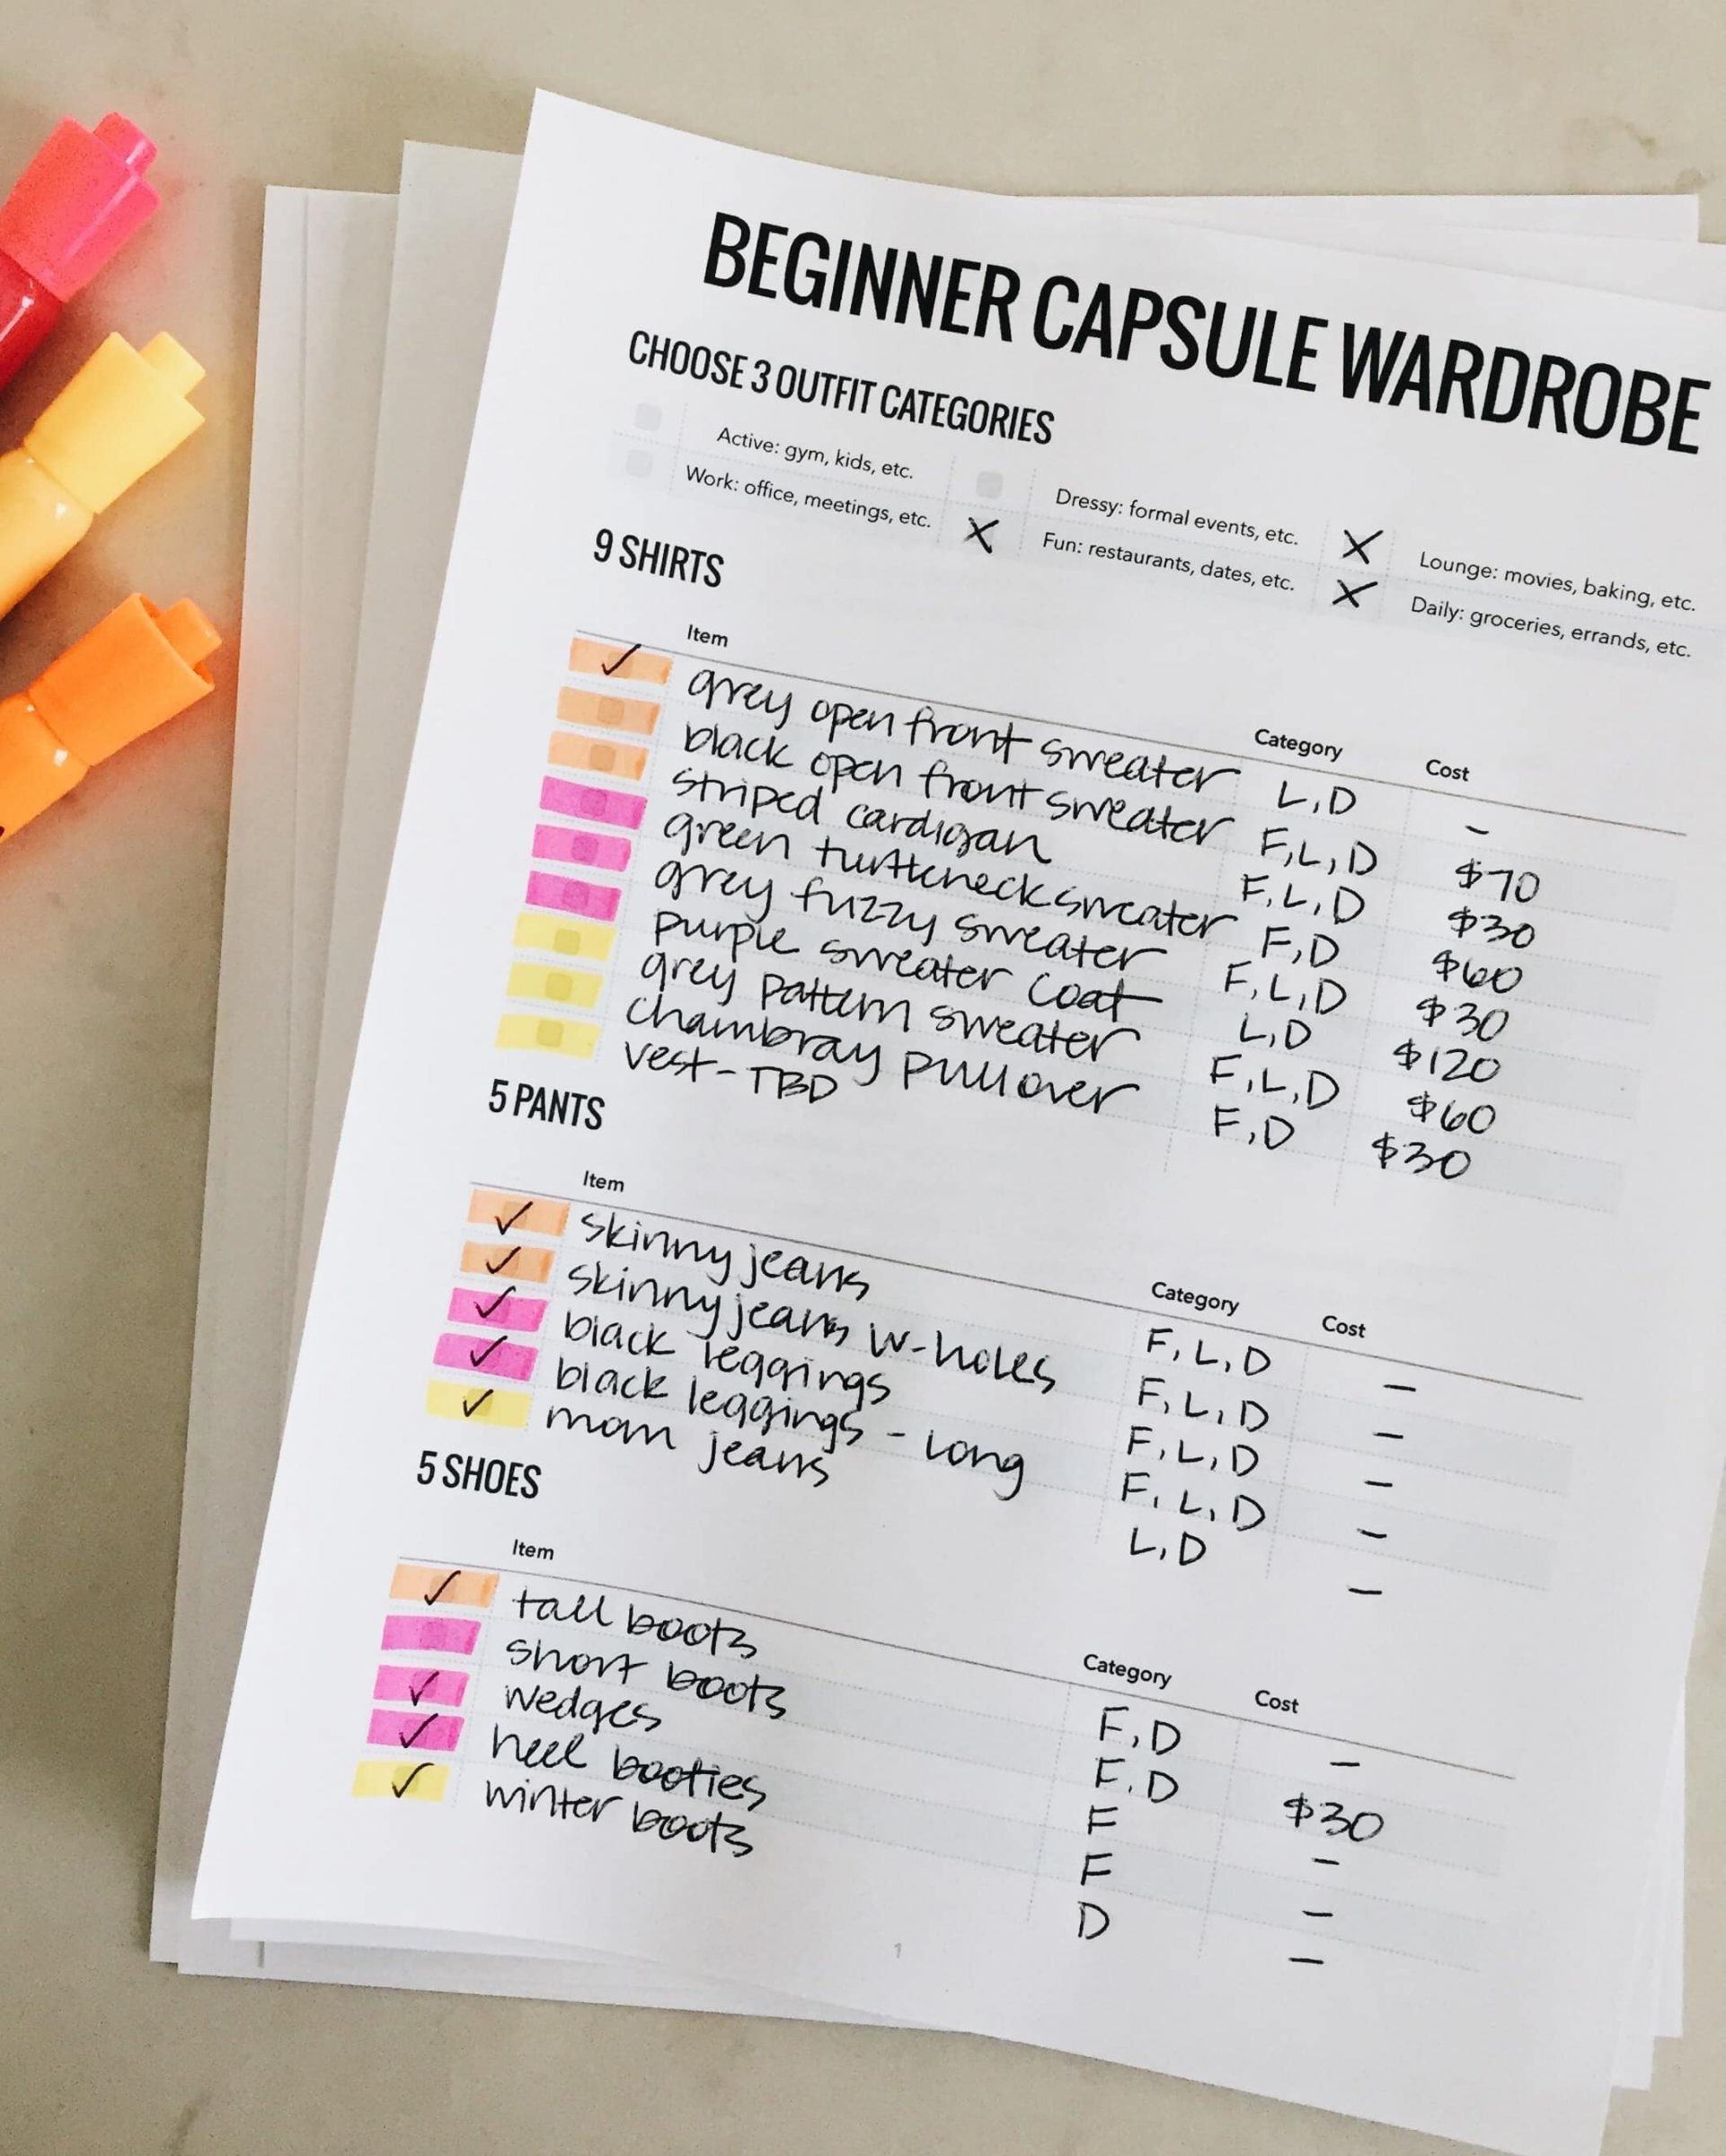 BEGINNER CAPSULE WARDROBE
CHOOSE 3 OUTFIT CATEGORIES
Active: gym, kids, etc. Dressy: formal events, etc. X Lounge: movies, baking, etc.
Work: office, meetings, etc. X Fun: restaurants, dates, etc. X Daily: groceries, errands, etc.
9 SHIRTS
Item Category Cost
✓ grey open front sweater L, D –
black open front sweater F, L, D $70
striped cardigan F, L, D $30
green turtleneck sweater F, D $60
grey fuzzy sweater F, L, D $30
purple sweater coat L, D $120
grey pattern sweater F, L, D $60
chambray pullover F, D $30
vest - TBD
5 PANTS
Item Category Cost
✓ skinny jeans F, L, D –
✓ skinny jeans w-holes F, L, D –
✓ black leggings F, L, D –
✓ black leggings - long F, L, D –
✓ mom jeans L, D –
5 SHOES
Item Category Cost
✓ tall boots F, D –
short boots F, D $30
✓ wedges F –
✓ heel booties F –
✓ winter boots D –
1